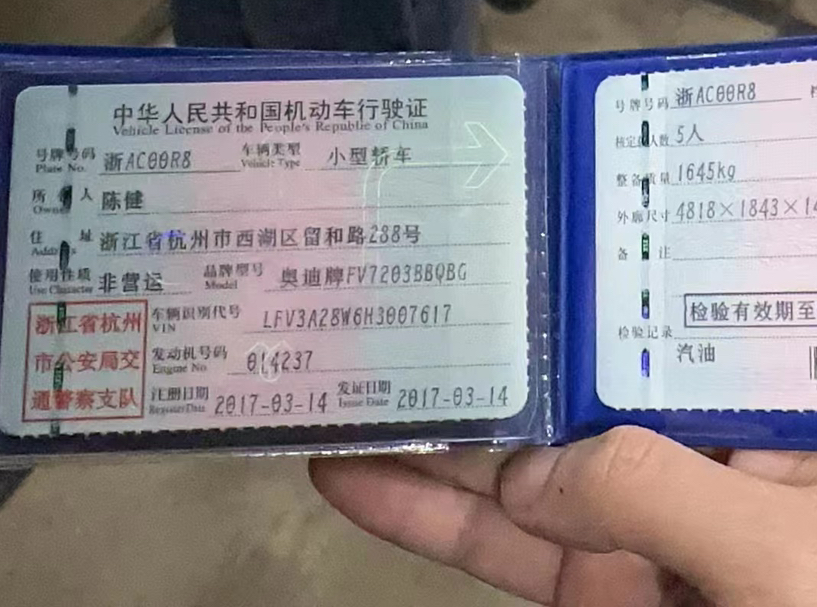 中华人民共和国机动车行驶证
Vehicle License of the People's Republic of China
号牌号码 浙AC00R8 车辆类型 小型轿车
Plate No. Vehicle Type
所有人 陈健
Owner
住址 浙江省杭州市西湖区留和路288号
Address
使用性质 非营运 品牌型号 奥迪牌FV7203BBQBG
Use Character Model
浙江省杭州
市公安局交
通警察支队
车辆识别代号 LFV3A28W6H3007617
VIN
发动机号码 014237
Engine No
注册日期 2017-03-14 发证日期 2017-03-14
Register Date Issue Date
号牌号码 浙AC00R8
核定载人数 5人
整备质量 1645kg
外廓尺寸 4818×1843×14
备注
检验有效期至
检验记录
汽油